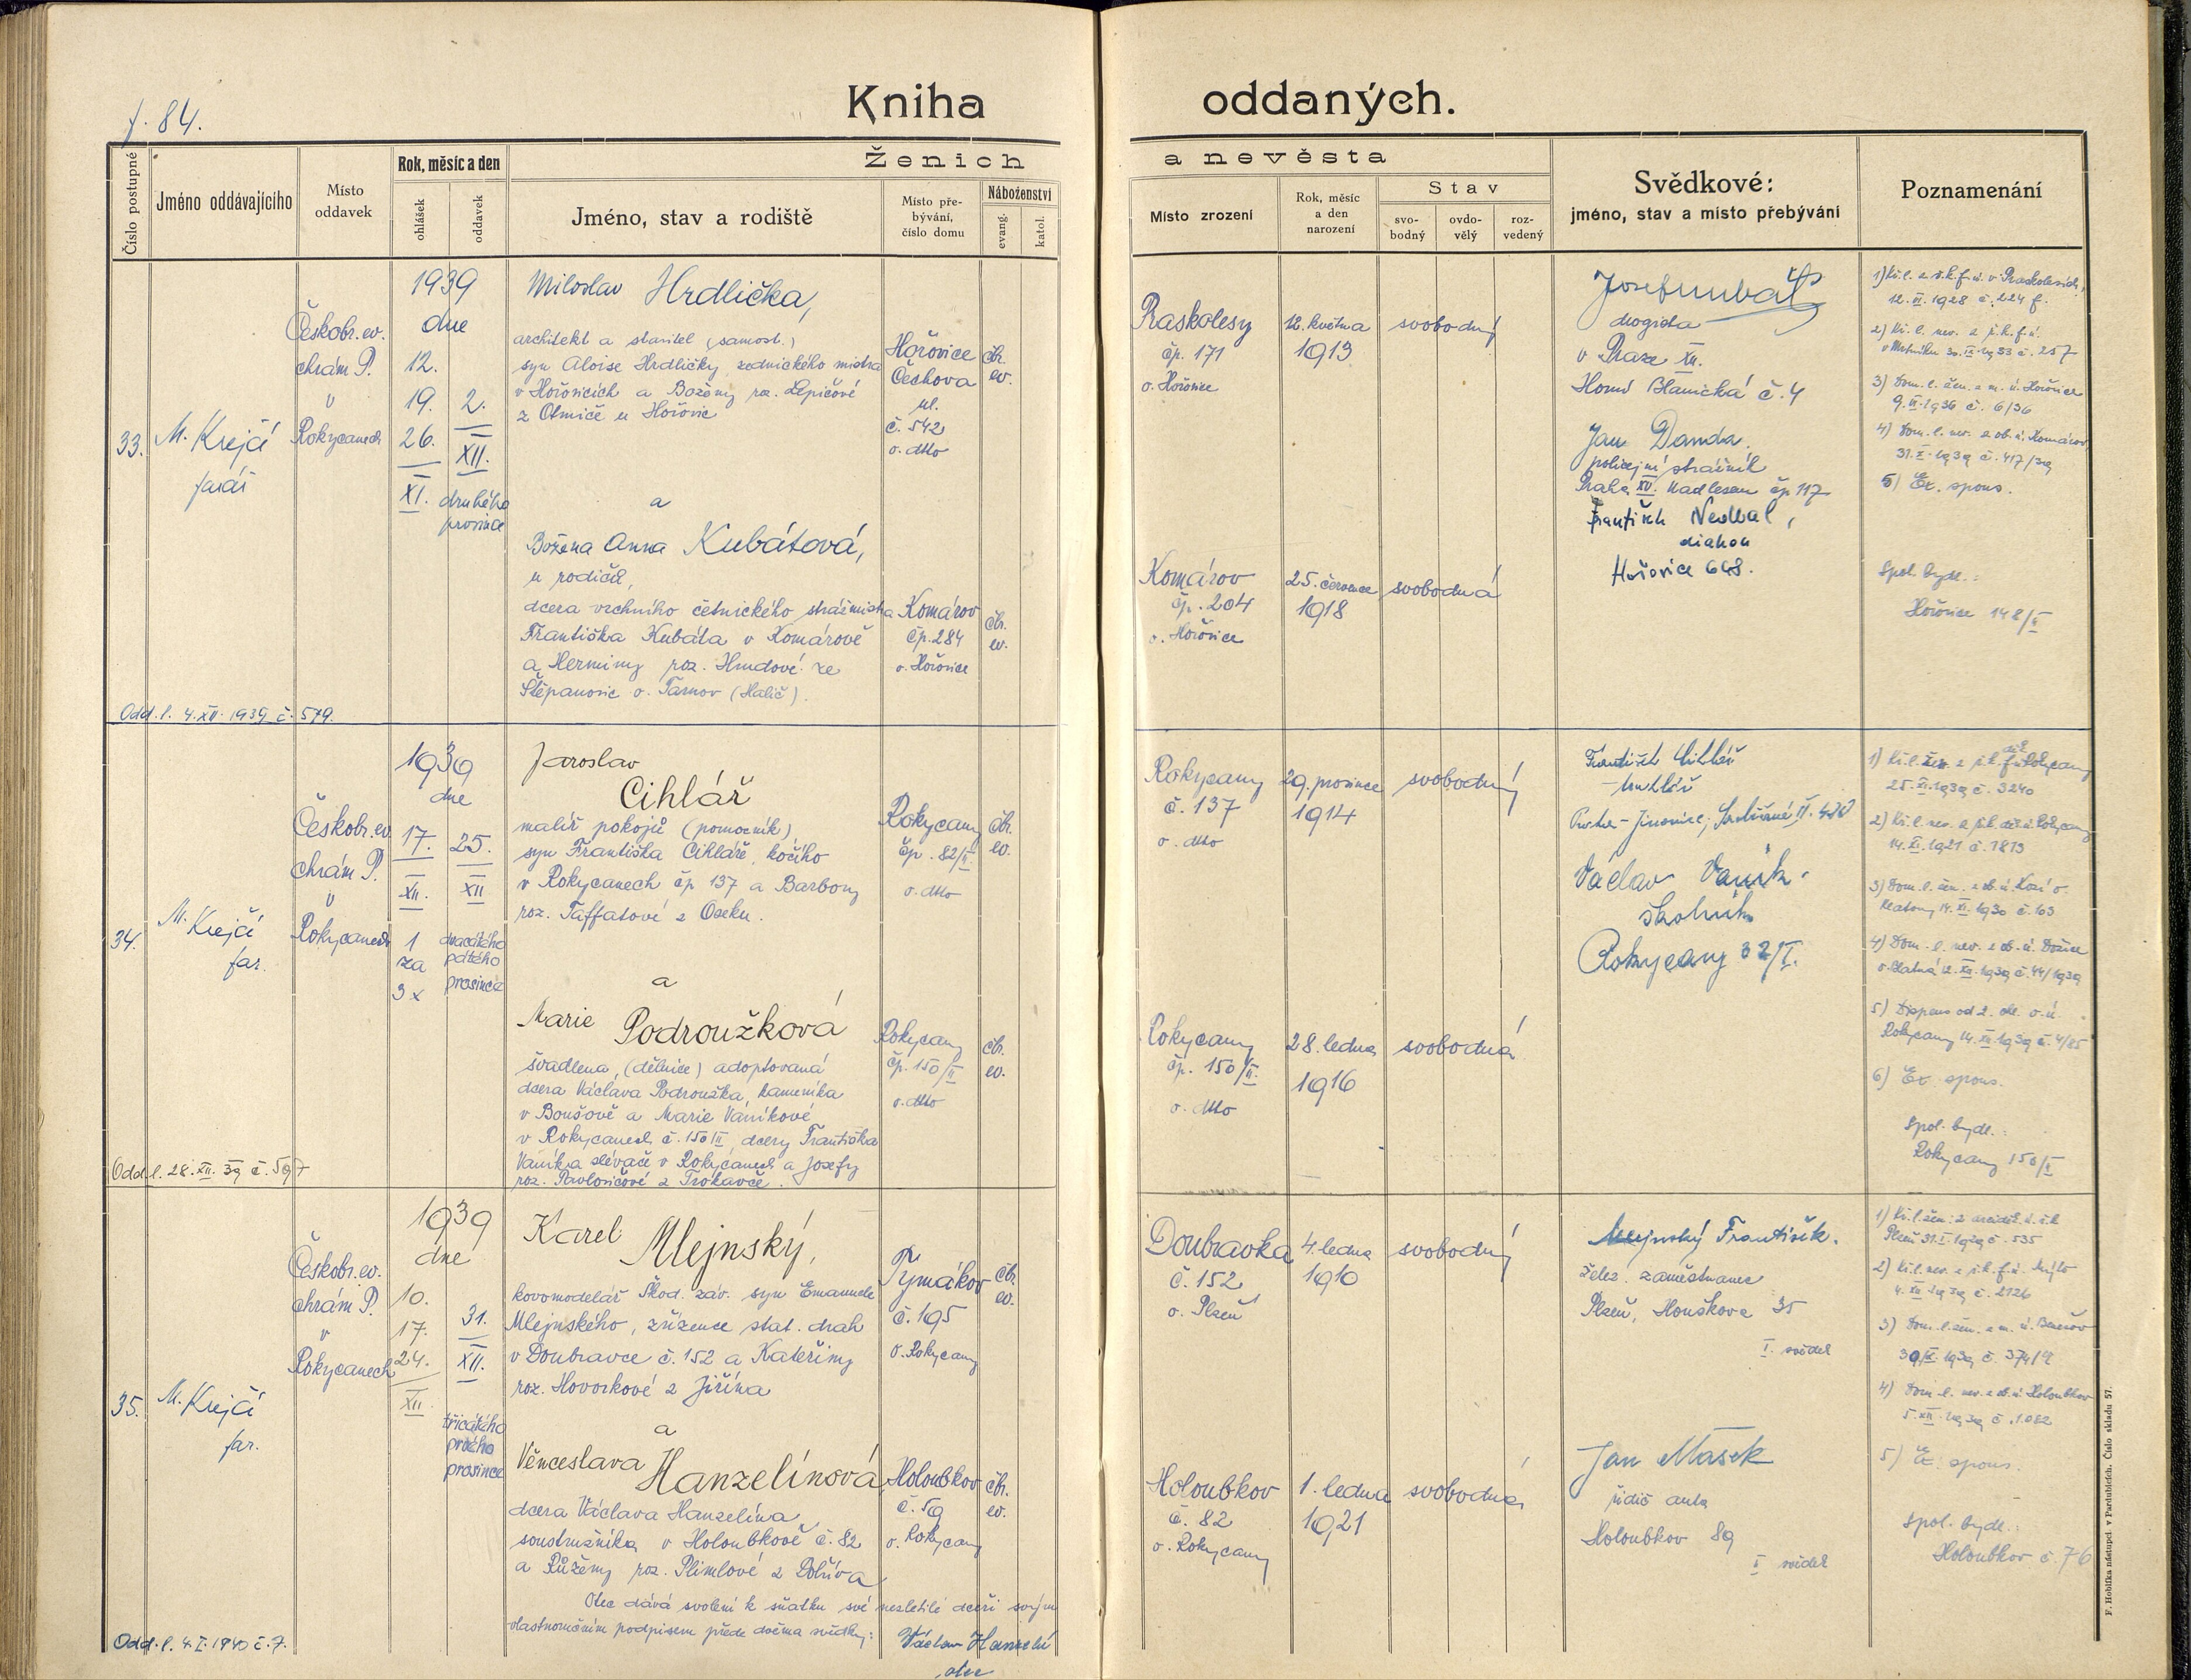 f. 84.
Kniha oddaných.
Číslo postupné
Jméno oddávajícího
Místo oddavek
Rok, měsíc a den
ohlášek
oddavek
Ženich a nevěsta
Jméno, stav a rodiště
Místo pře-
bývání,
číslo domu
Náboženství
evang.
katol.
Místo zrození
Rok, měsíc
a den
narození
Stav
svo-
bodný
ovdo-
vělý
roz-
vedený
Svědkové:
jméno, stav a místo přebývání
Poznamenání
33.
M. Krejčí
farář
Českobr. ev.
chrám P.
v
Rokycanech
1939
dne
12.
19.
26.
XI.
2.
XII.
druhého
prosince
Miloslav Hrdlička,
architekt a stavitel (samost.)
syn Aloise Hrdličky zednického mistra
v Hořovicích a Boženy roz. Lepičové
z Otmíče u Hořovic
Hořovice
Čechova
ul.
č. 542
o. dtto
čbr.
ev.
a
Božena Anna Kubátová,
u rodičů,
dcera vrchního četnického strážmistra
Františka Kubáta v Komárově
a Herminy roz. Hrudové ze
Štěpanovic o. Tarnov (Halič).
Komárov
čp. 284
o. Hořovice
čbr.
ev.
Odd. l. 4. XII. 1939 č. 579.
Praskolesy
čp. 171
o. Hořovice
12. května
1913
svobodný
Komárov
čp. 204
o. Hořovice
25. července
1918
svobodná
Josef
drogista
v Praze XII.
Horní Blanická č. 4
Jan Danda
policejní strážník
Praha XV. Nad lesem čp 117
František Nedbal,
diakon
Hořovice 648.
1) Kř. l. z ř. k. f. ú. v Praskolesích
12. VI. 1928 č. 224 f.
2) Kř. l. nev. z ř. k. f. ú.
257
3) Dom. l. žen. z m. ú. Hořovice
9. 1936 č. 6/36
4) Dom. l. nev. z ob. ú. Komárov
31. X. 1939 č. 417/39
5) Ex. spons.
Spol. bydl.:
Hořovice 148/II
34.
M. Krejčí
far.
Českobr. ev.
chrám P.
v
Rokycanech
1939
dne
17.
XII.
1
za
3x
25.
XII
dvacátého
pátého
prosince
Jaroslav
Cihlář
malíř pokojů (pomocník)
syn Františka Cihláře, kočího
v Rokycanech čp 137 a Barbory
roz. Taffatové z Oseku.
Rokycany
čp. 82/II
o. dtto
čbr.
ev.
a
Marie Podroužková
švadlena, (dělnice) adoptovaná
dcera Václava Podroužka, kameníka
v Boušově a Marie Vaníkové
v Rokycanech č. 150/II, dcery Františka
Vaníka slévače v Rokycanech a Josefy
roz. Pavlovičové z Trokavče.
Rokycany
čp. 150/II
o. dtto
čbr.
ev.
Odd. l. 28. XII. 39 č. 597
Rokycany
č. 137
o. dtto
29. prosince
1914
svobodný
Rokycany
čp. 150/II.
o. dtto
28. ledna
1916
svobodná
František Cihlář
truhlář
Praha - Jinonice,
Václav Vaník.
školník
Rokycany 32/I.
1) Kř. l. žen. z ř. k. děk. f. ú. Rokycany
25. XI. 1939 č. 3240
2) Kř. l. nev. z ř. k. děk. ú. Rokycany
14. XI. 1921 č. 1813
3) Dom. l. žen. z ob. ú. Kozí o.
Klatovy 14. XI. 1930 č. 163
4) Dom. l. nev. z ob. ú. Dožice
o. Blatná 12. XII. 1939 č. 44/1939
5) Dispens od 2. ohl. o. ú.
Rokycany 14. XII. 1939 č. 4/85
6) Ex. spons.
Spol. bydl.:
Rokycany 150/II
35.
M. Krejčí
far.
Českobr. ev.
chrám P.
v
Rokycanech
1939
dne
10.
17.
24.
XII.
31.
XII.
třicátého
prvého
prosince
Karel Mlejnský,
kovomodelář Škod. záv. syn Emanuele
Mlejnského, zřízence stat. drah
v Doubravce č. 152 a Kateřiny
roz. Hovorkové z Jiřína
Tymákov
č. 195
o. Rokycany
čbr.
ev.
a
Věnceslava Hanzelínová
dcera Václava Hanzelína
soustružníka v Holoubkově č. 82
a Růženy roz. Plimlové z Volduch
Holoubkov
č. 59
o. Rokycany
čbr.
ev.
Otec dává svolení k sňatku své nezletilé dceři svým
vlastnoručním podpisem přede dvěma svědky:
Václav Hanzelín
otec
Odd. l. 4. I. 1940 č. 7.
Doubravka
č. 152
o. Plzeň
4. ledna
1910
svobodný
Holoubkov
č. 82
o. Rokycany
1. ledna
1921
svobodná
Mlejnský František.
želez. zaměstnanec
Plzeň, Houškova 35
I. svědek
Jan Mašek
řidič auta
Holoubkov 89
I svědek
1) Kř. l. žen. z arciděk. ú. ř. k.
Plzeň 31. I. 1929 č. 535
2) Kř. l. nev. z ř. k. f. ú. Mýto
4. XII. 1939 č. 2126
3) Dom. l. žen. z m. ú. Benešov
1939 č. 374/9
4) Dom. l. nev. z ob. ú. Holoubkov
5. XII. 1939 č. 1.082
5) Ex. spons.
Spol. bydl.:
Holoubkov č. 76
F. Hoblíka nástupci v Pardubicích. Číslo skladu 57.